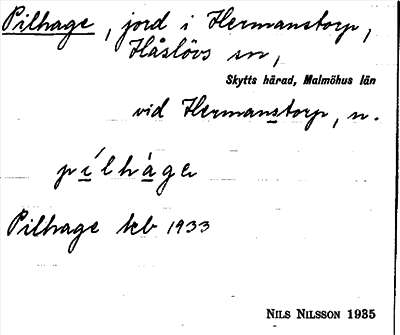 Pilhage, jord i Hermanstorp,
Håslövs sn,
Skytts härad, Malmöhus län
vid Hermanstorp, n.
pílhàgen
Pilhage kb 1933
NILS NILSSON 1935